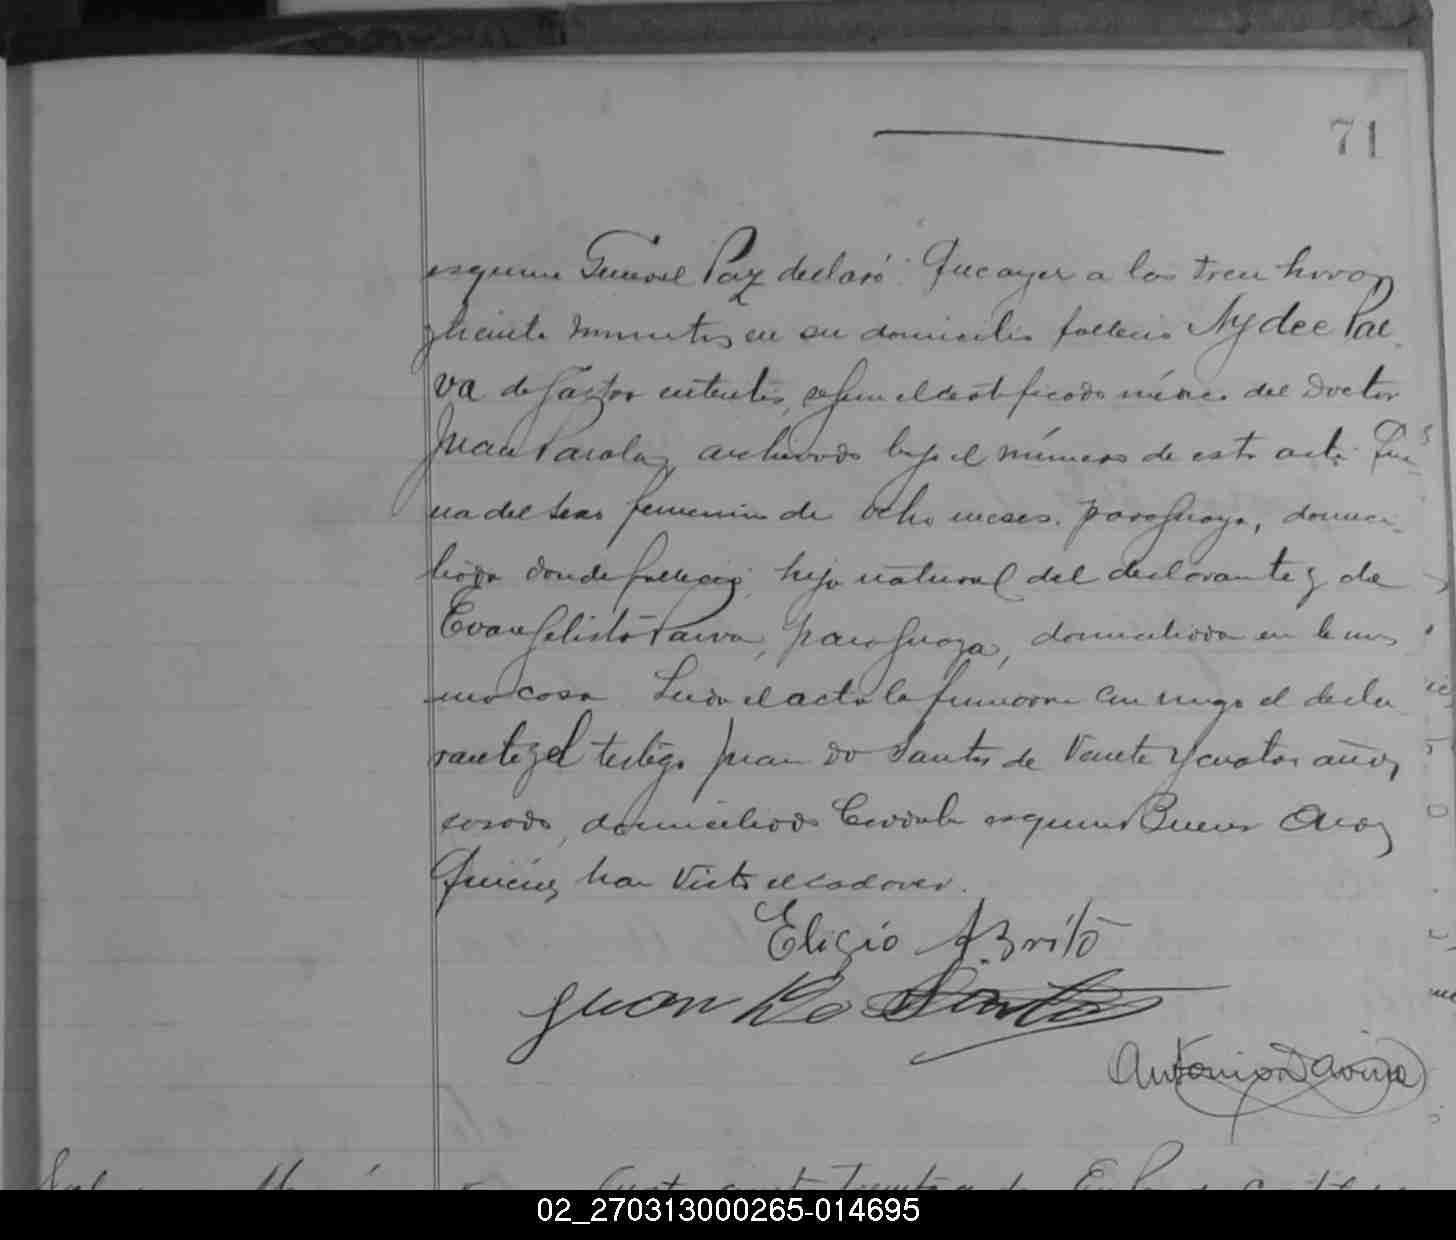 71
esquina General Paz declaró: Que ayer a las trece horas
y treinta minutos en su domicilio falleció Aydee Pai
va de gastro enteritis, según el certificado médico del Doctor
Juan archivado bajo el número de esta acta. Que
era del sexo femenino de ocho meses, paraguaya, domici
liada donde falleció; hija natural del declarante y de
Evangelista Paiva, paraguaya, domiciliada en la mis
ma casa. Leida el acta la firmaron conmigo el decla
rante y el testigo Juan Do Santos de veinte y cuatro años,
casado, domiciliado Córdoba esquina Buenos Aires
Quienes han visto el cadáver.
Eligio A. Brito
Juan Do Santos
Antonio
02_270313000265-014695